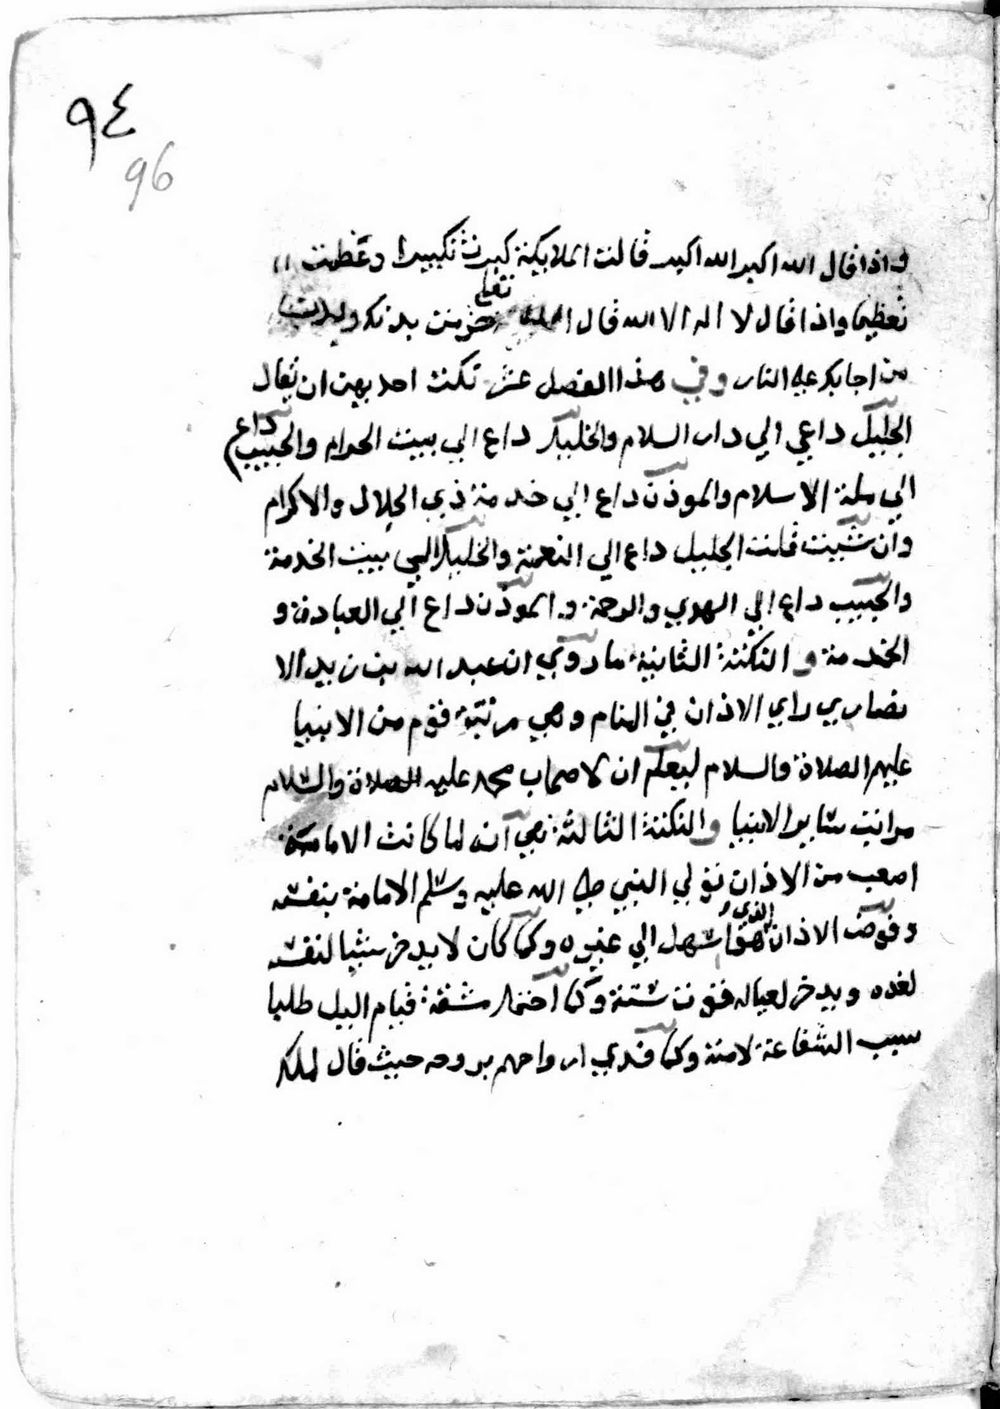 ٩٤
96
واذا قال الله اكبر الله اكبر قالت الملايكة كبرت تكبيرا وعظمت
تعظيما واذا قال لا اله الا الله قال الله تعلى حرمت بدنك وبدن
من اجابك على النار وفي هذا الفصل عشر نكت احديهن ان يقال
الجليل داعي الي دار السلام والخليل داع الي بيت الحرام والحبيب داع
الي ملة الاسلام والموذن داع الي خدمة ذي الجلال والاكرام
وان شيت قلت الجليل داع الي النعمة والخليل الي بيت الخدمة
والحبيب داع الي الهدي والرحمة والموذن داع الي العبادة و
الخدمة والنكتة الثانية ما روي ان عبد الله بن زيد الا
نصاري راي الاذان في المنام وهي مرتبة قوم من الانبيا
عليهم الصلاة والسلام ليعلم ان لاصحاب محمد عليه الصلاة والسلام
مراتب ساير الانبيا والنكتة الثالثة هي انه لما كانت الامامة
اصعب من الاذان تولي النبي صلي الله عليه وسلم الامامة بنفسه
وفوض الاذان الذي هو اسهل الي غيره وكما كان لا يدخر شيا لنفسه
لغده ويدخر لعياله قوت سنة وكما اختار مشقة قيام اليل طلبا
سبب الشفاعة لامته وكما فدي ارواحهم بروحه حيث قال لملك